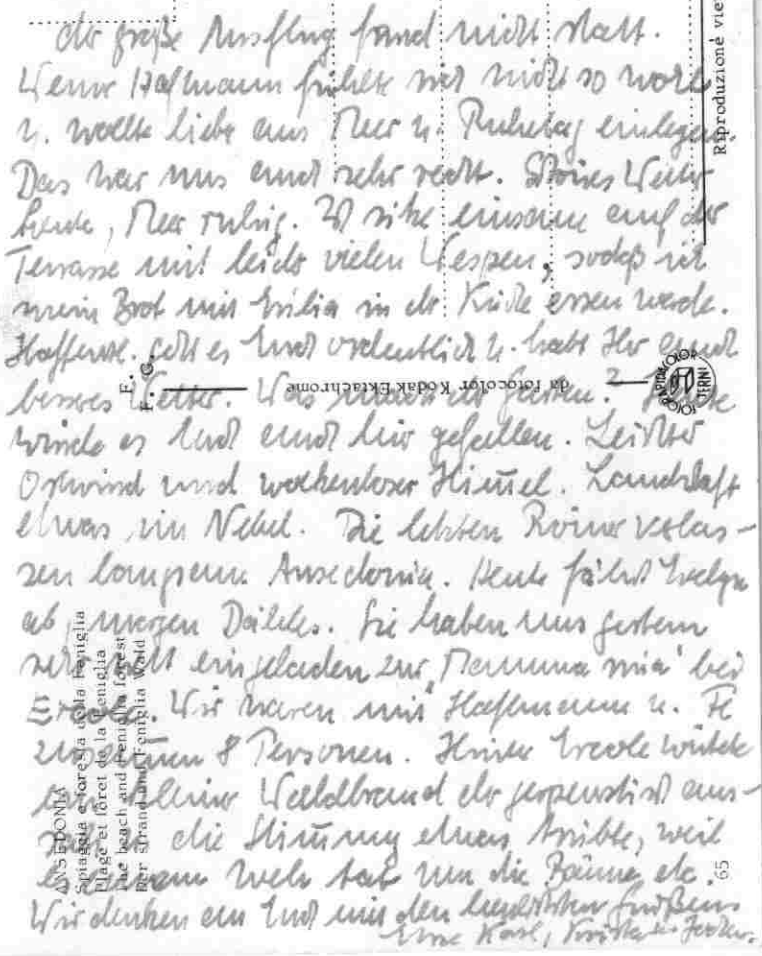 der große Ausflug fand nicht statt.
Werner Haftmann fühlte sich nicht so wohl
u. wollte lieber ans Meer u. Ruhetag einlegen.
Das war uns auch sehr recht. Schönes Wetter
heute, Meer ruhig. Ich sitze einsam auf der
Terrasse mit leider vielen Wespen, sodaß ich
mein Brot mit Emilia in der Küche essen werde.
Hoffentl. geht es Euch ordentlich u. habt Ihr auch
besseres Wetter. Was macht der Garten? Heute
würde es Euch auch hier gefallen. Leichter
Ostwind und wolkenloser Himmel. Landschaft
etwas im Nebel. Die letzten Römer verlas-
sen langsam Ansedonia. Heute fährt Evelyn
ab, morgen. Sie haben uns gestern
sehr nett eingeladen zur "Mamma mia" bei
Ercole. Wir waren mit Haftmann u. Fe
zusammen 8 Personen. Hinter Ercole wütete
ein kleiner Waldbrand der gespenstisch aus-
sah u. die Stimmung etwas trübte, weil
es einem weh tat um die Bäume etc.
Wir denken an Euch mit den herzlichsten Grüßen
Eure Karl,
Riproduzione vie
F. G.
F.
da Fotocolor Kodak Ektachrome
FOTORAPIDACOLOR TERNI
ANSEDONIA
Spiaggia e foresta della Feniglia
Plage et fôret de la Feniglia
The beach and Feniglia forest
Der strand und Feniglia Wald
65